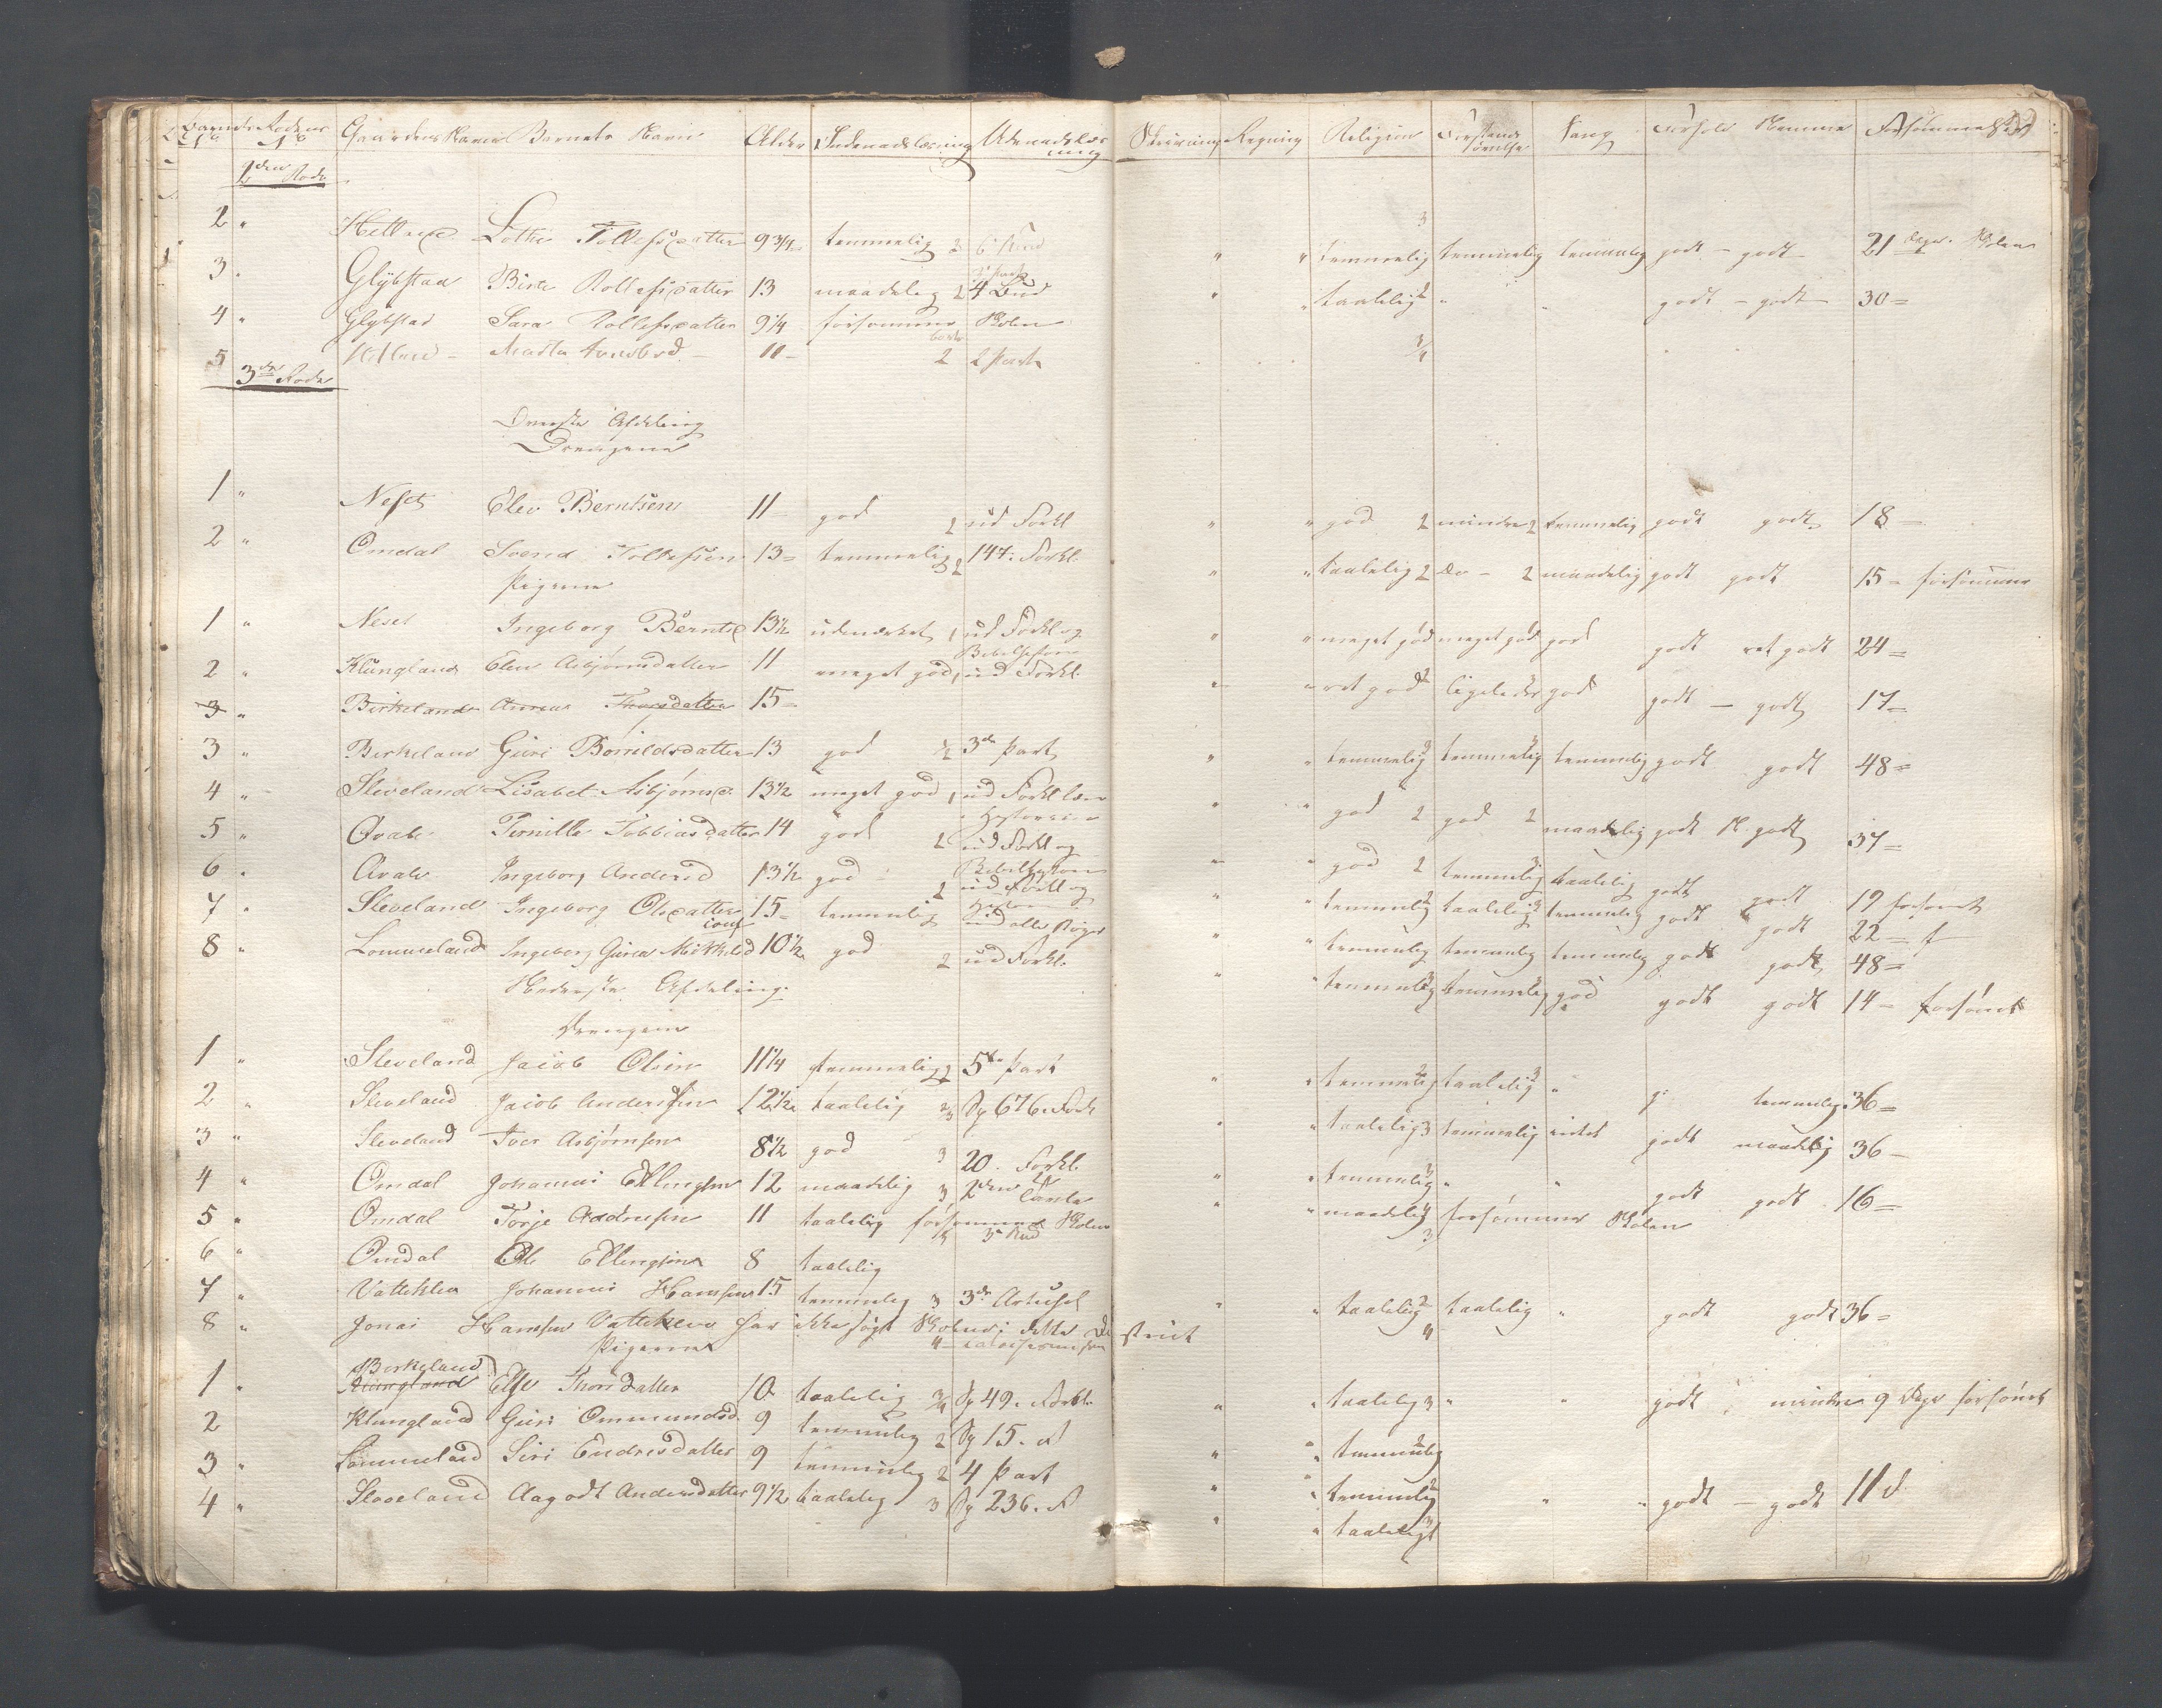 Barnets No Rodens No Gaardens Navn Barnets Navn Alder Indenadslæsning Udenadslæsning Skrivning Regning Religion Forstands øvelse Sang Forhold Hjemme Forsømmelser
2den Rode
2 " Lothe Tollefsdatter 9 3/4 temmelig 3 6 Bud " " temmelig 3 temmelig temmelig godt - godt 21 Dage Skolen
3 " Glybstad Birte Rollefsdatter 13 maadelig 2 4 Bud " " taalelig 2 " " godt - godt 30 =
4 " Glybstad Sara Rollefsdatter 9 1/4 forsømmer Skolen
5 Marta 11 - 2 2 Part
3die Rode
Øverste Afdeling
Drengene
1 " Neset Elev Berntsen 11 god 2 ud Forkl " " god 2 mindre 2 temmelig godt godt 18 =
2 " Omdal Svend Tollefsen 13 = temmelig 2 147. Forkl. " " taalelig 2 do - 2 maadelig godt godt 15 = forsømmer
Pigerne
1 " Neset Ingeborg Berntsd 13 1/2 udmerket 1 ud Forkl og Bibelhistorie " " meget god meget god god godt ret godt 24 =
2 " Klungland Elen Asbjørnsdatter 11 meget god 1 ud Forkl. " " ret god 2 ligeledes god godt - godt 17 =
3 " Birkeland Anna Thorsdatter 15 =
3 " Birkeland Guri Borrildsdatter 13 god 2 3die Part " " temmelig 3 temmelig temmelig godt godt 48 =
4 " Sleveland Lisabet Asbjørnsd: 13 1/2 meget god 1 ud Forkl " " god 2 god 2 maadelig godt godt 37 =
5 " Qvale Pernille Tobbiasdatter 14 god 2 ud Forkl og Bibelhistorie " " god 2 temmelig taalelig godt godt 19 forsømt
6 " Qvale Ingeborg Andersd 13 1/2 god 2 ud Forkl og " " temmelig taalelig temmelig godt godt 22 = f
7 " Sleveland Ingeborg Olsdatter conf 15 = temmelig ud alle Bøger " " temmelig temmelig temmelig godt godt 48 =
8 " Lommeland Ingeborg Guria Mikkelsd 10 1/2 god 2 ud Forkl. " " temmelig temmelig god godt godt 14 = forsømt
Nederste Afdeling.
Drengene
1 " Sleveland Jacob Olsen 11 1/4 temmelig 2 5te Part " " temmelig 2 taalelig 3 " g temmelig 36 =
2 " Sleveland Jacob Anderssen 12 1/2 taalelig Sp 676. Forkl " " taalelig 3 temmelig intet godt maadelig 36 -
3 " Sleveland Iver Asbjørnsen 8 1/2 god 3 20. Forkl. " " temmelig 3 " " godt godt 16 =
4 " Omdal Johannes Ellingsen 12 maadelig 3 2den Tavle " " maadelig forsømmer Skolen
5 " Omdal Torje Andreasen 11 taalelig forsømmer Skolen 3 Bud 3
6 " Omdal Ole Ellingsen 8 taalelig
7 " Vatteklev Johannes Hansen 15 temmelig 3 3die Artikel " " taalelig 2 taalelig " godt godt 36 =
8 " Jonas Hansen Vatteklev har ikke søgt Skolen i dette Distrikt
Pigerne
1 " Birkeland Klungland Else Thorsdatter 10 taalelig Sp 49. Forkl. " " taalelig 3 " " godt mindre 9 Dage forsømt
2 " Klungland Guri Ommundsd 9 temmelig 2 Sp 15. F " " temmelig
3 " Lommeland Siri Endresdatter 9 temmelig 2 4 Part " " temmelig " " godt - godt 11 d.
4 " Sleveland Aagodt Andersdatter 9 1/2 taalelig 3 Sp 236. F " " taaleligt